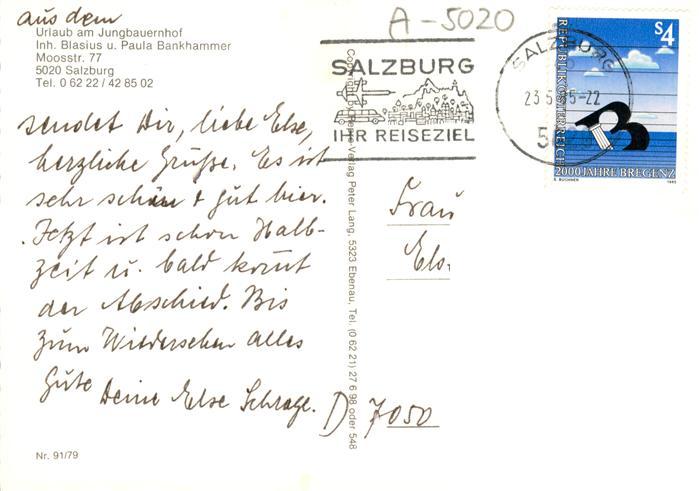 aus dem
Urlaub am Jungbauernhof
Inh. Blasius u. Paula Bankhammer
Moosstr. 77
5020 Salzburg
Tel. 0 62 22 / 42 85 02
sendet Dir, liebe Else,
herzliche Grüße. Es ist
sehr schön + gut hier.
Jetzt ist schon Halb-
zeit u. bald kommt
der Abschied. Bis
zum Wiedersehen alles
Gute Deine Else Schragl.
Nr. 91/79
Verlag Peter Lang, 5323 Ebenau, Tel. (0 62 21) 27 6 98 oder 548
A-5020
SALZBURG
IHR REISEZIEL
SALZBURG
23.5.85-22
S4
REPUBLIK ÖSTERREICH
2000 JAHRE BREGENZ
1985
Frau
Els
D 7050